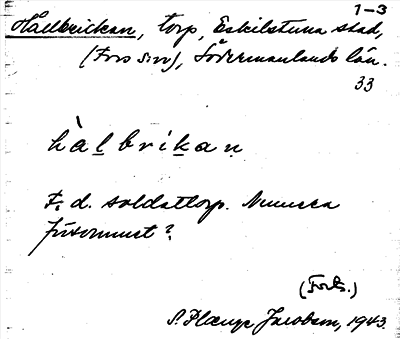 1-3
Hällbrickan, torp, Eskilstuna stad,
(Fors sn), Södermanlands län.
33
hàlbrikan
F. d. soldattorp. Numera
försvunnet?
(Forts.)
S. Plænge Jacobson, 1943.